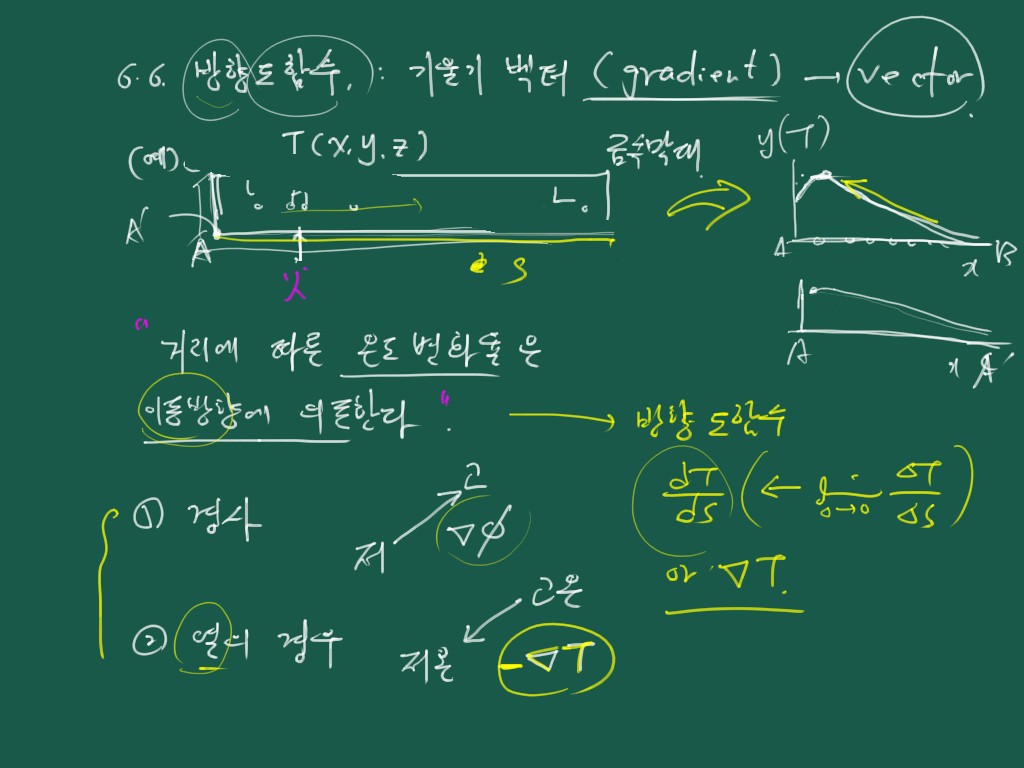 6.6. 방향도함수. : 기울기 벡터 (gradient) → vector
(예) T(x, y, z) 금속막대
y(T)
A' A
S
A x B
A x
"거리에 따른 온도변화율은
이동방향에 의존한다".
→ 방향 도함수
dT/ds (← lim ΔT/Δs)
or ∇T.
① 경사
저 고 ∇φ
② 열의 경우
고온
저온 -∇T